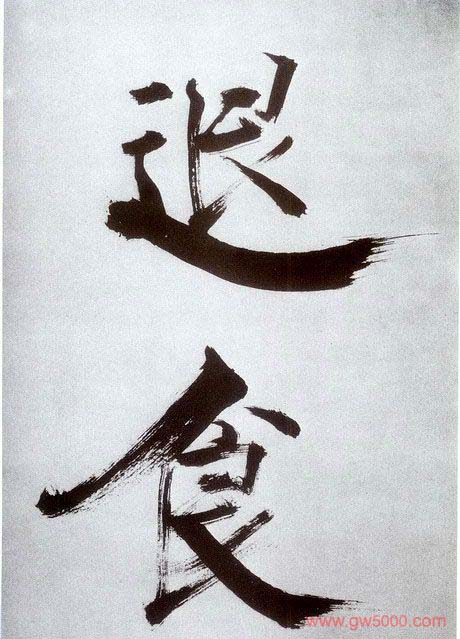 退
食
www.gw5000.com